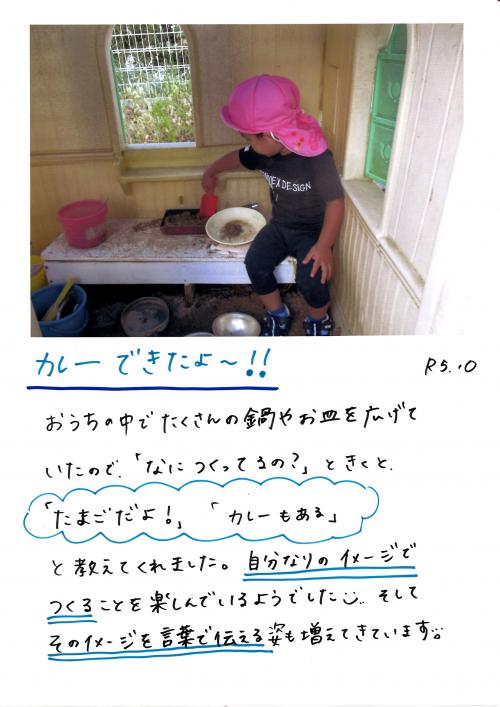 NDEX DESIGN
カレーできたよ〜!!
R5.10
おうちの中でたくさんの鍋やお皿を広げて
いたので、「なにつくってるの?」ときくと、
「たまごだよ!」「カレーもある」
と教えてくれました。自分なりのイメージで
つくることを楽しんでいるようでした。そして
そのイメージを言葉で伝える姿も増えてきています。